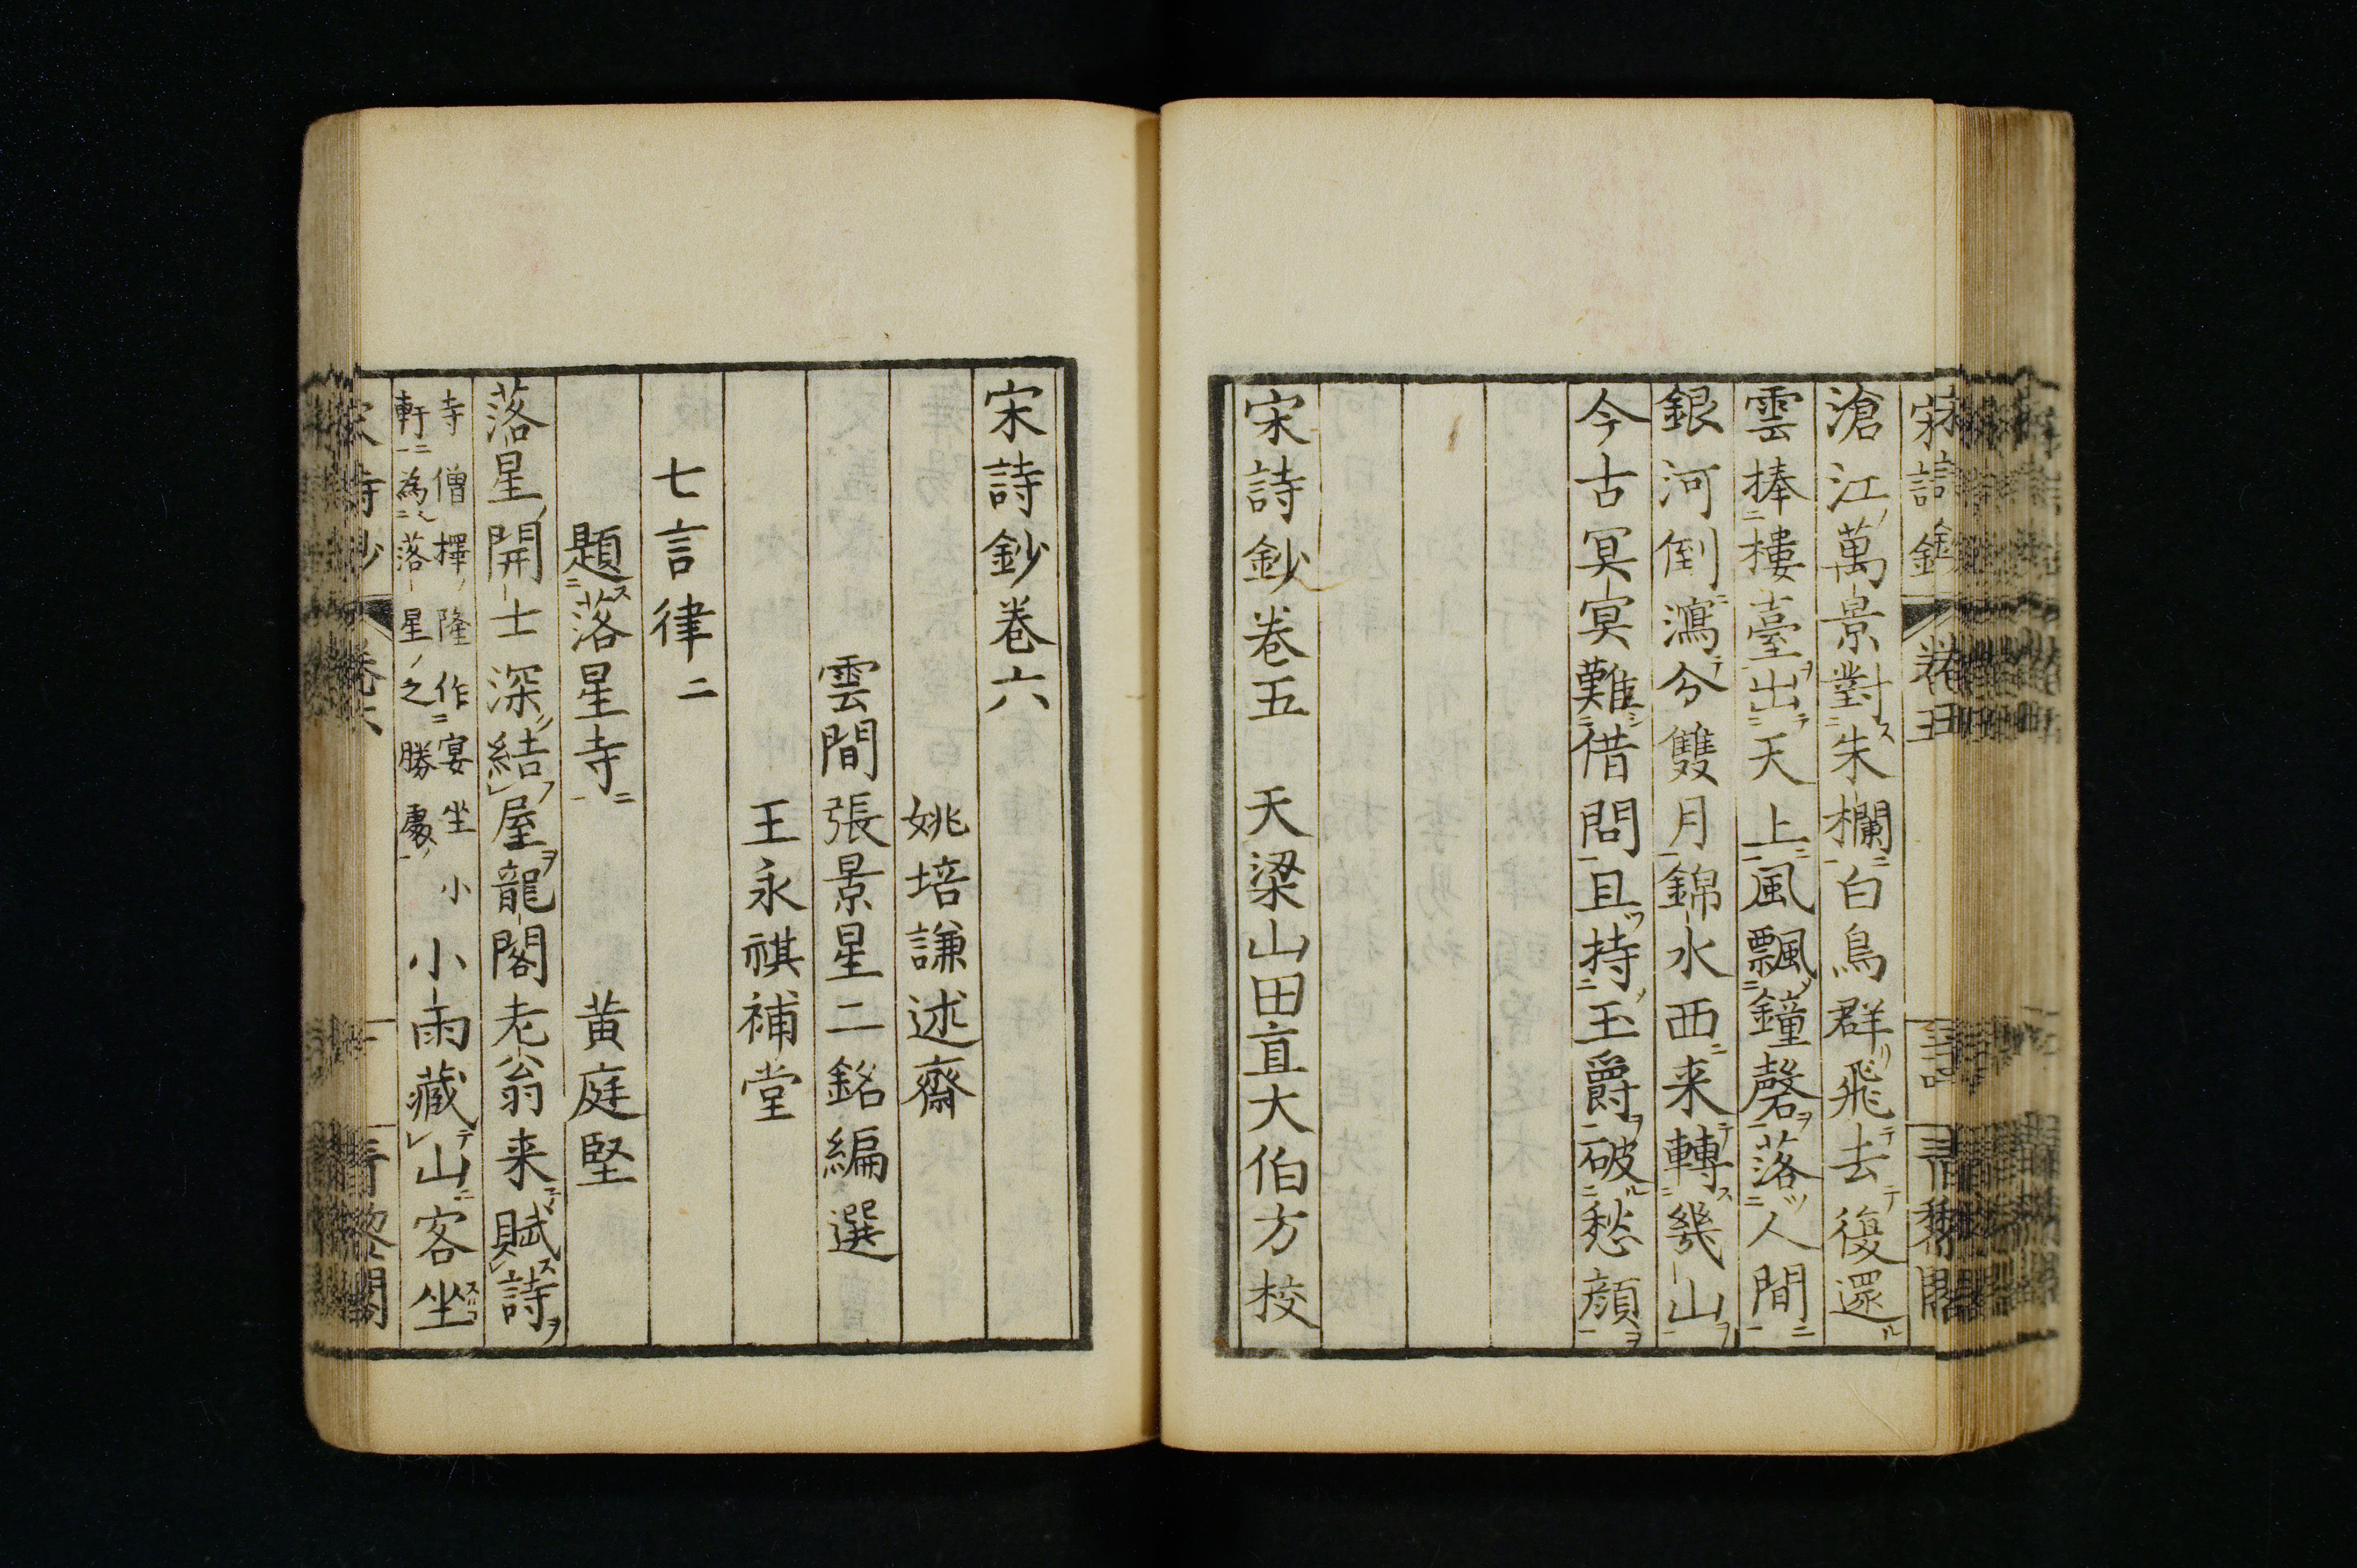 滄江萬景對朱欄白鳥群飛去復還
雲捧樓臺出天上風飄鐘磬落人間
銀河倒瀉分雙月錦水西来轉幾山
今古冥冥難借問且持玉爵破愁顔
宋詩鈔卷五　天梁山田直大伯方校
宋詩鈔卷六
姚培謙述齋
雲間張景星二銘編選
王永祺補堂
七言律二
題落星寺　黄庭堅
落星開士深結屋龍閣老翁来賦詩
寺僧擇隆作宴坐小
軒為落星之勝處
小雨藏山客坐